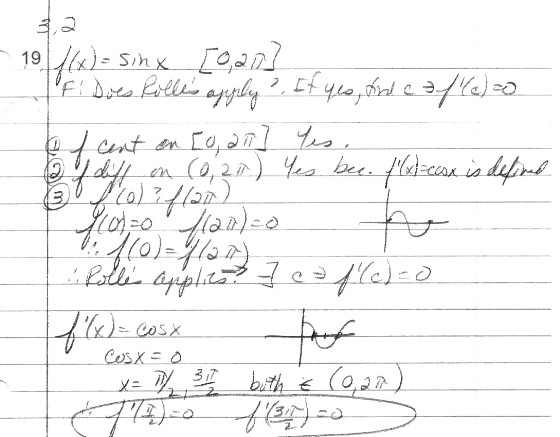 3,2
19 f(x) = sin x [0,2π]
F: Does Rolle's apply?. If yes, find c ∋ f'(c) = 0
① f cont on [0,2π] Yes.
② f diff on (0,2π) Yes bec. f'(x)=cosx is defined
③ f(0) ? f(2π)
f(0)=0 f(2π)=0
∴ f(0) = f(2π)
∴ Rolle's applies? → ∃ c ∋ f'(c) = 0
f'(x) = cosx
cosx = 0
x = π/2, 3π/2 both ∈ (0,2π)
∴ f'(π/2)=0 f'(3π/2)=0